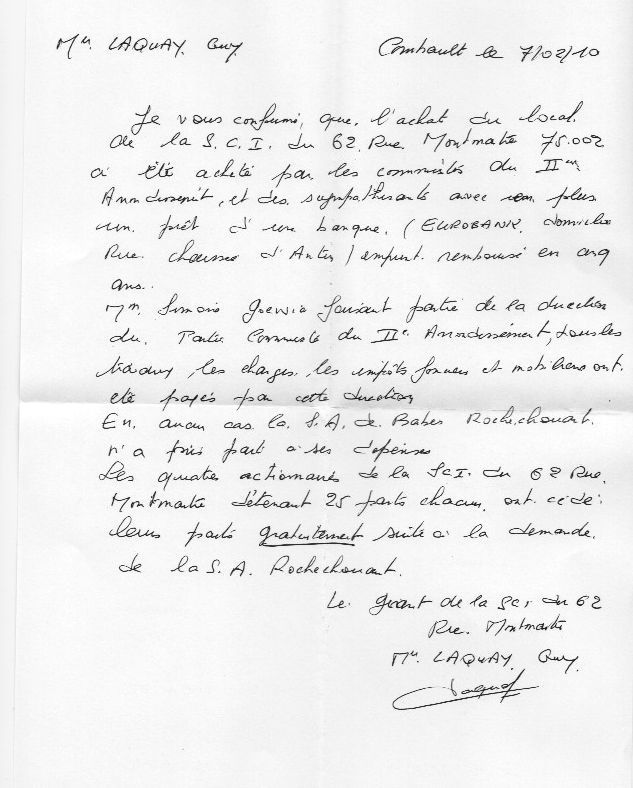 Mr. LAQUAY. Guy
Combault le 7/02/10
Je vous confirme, que, l'achat du local.
de la S.C.I. du 62 Rue Montmatre 75.002
a été acheté par les communistes du IIem
Arrondissement, et des sympathisants avec en plus
un prêt d'une banque. (EUROBANK, domicilie
Rue. chaussee d'Antin) emprunt. remboursé en cinq
ans..
Mr. Simoni faisant partie de la direction
du. Partie Communiste du IIe. Arrondissement, tous les
travaux, les charges, les impôts fonciers et mobiliers ont.
été payés par cette direction
En. aucun cas la. S.A. de Babes Rochechouart.
n'a pris part a ses depenses
Les quatres actionnaires de la ScI. du 62 Rue.
Montmartre détenant 25 parts chacun, ont. cédé.
leurs parts gratuitement suite à la demande.
de la S.A. Rochechouart.
Le gérant de la Sci du 62
Rue. Montmartre
Mr. LAQUAY, Guy.
Laquay